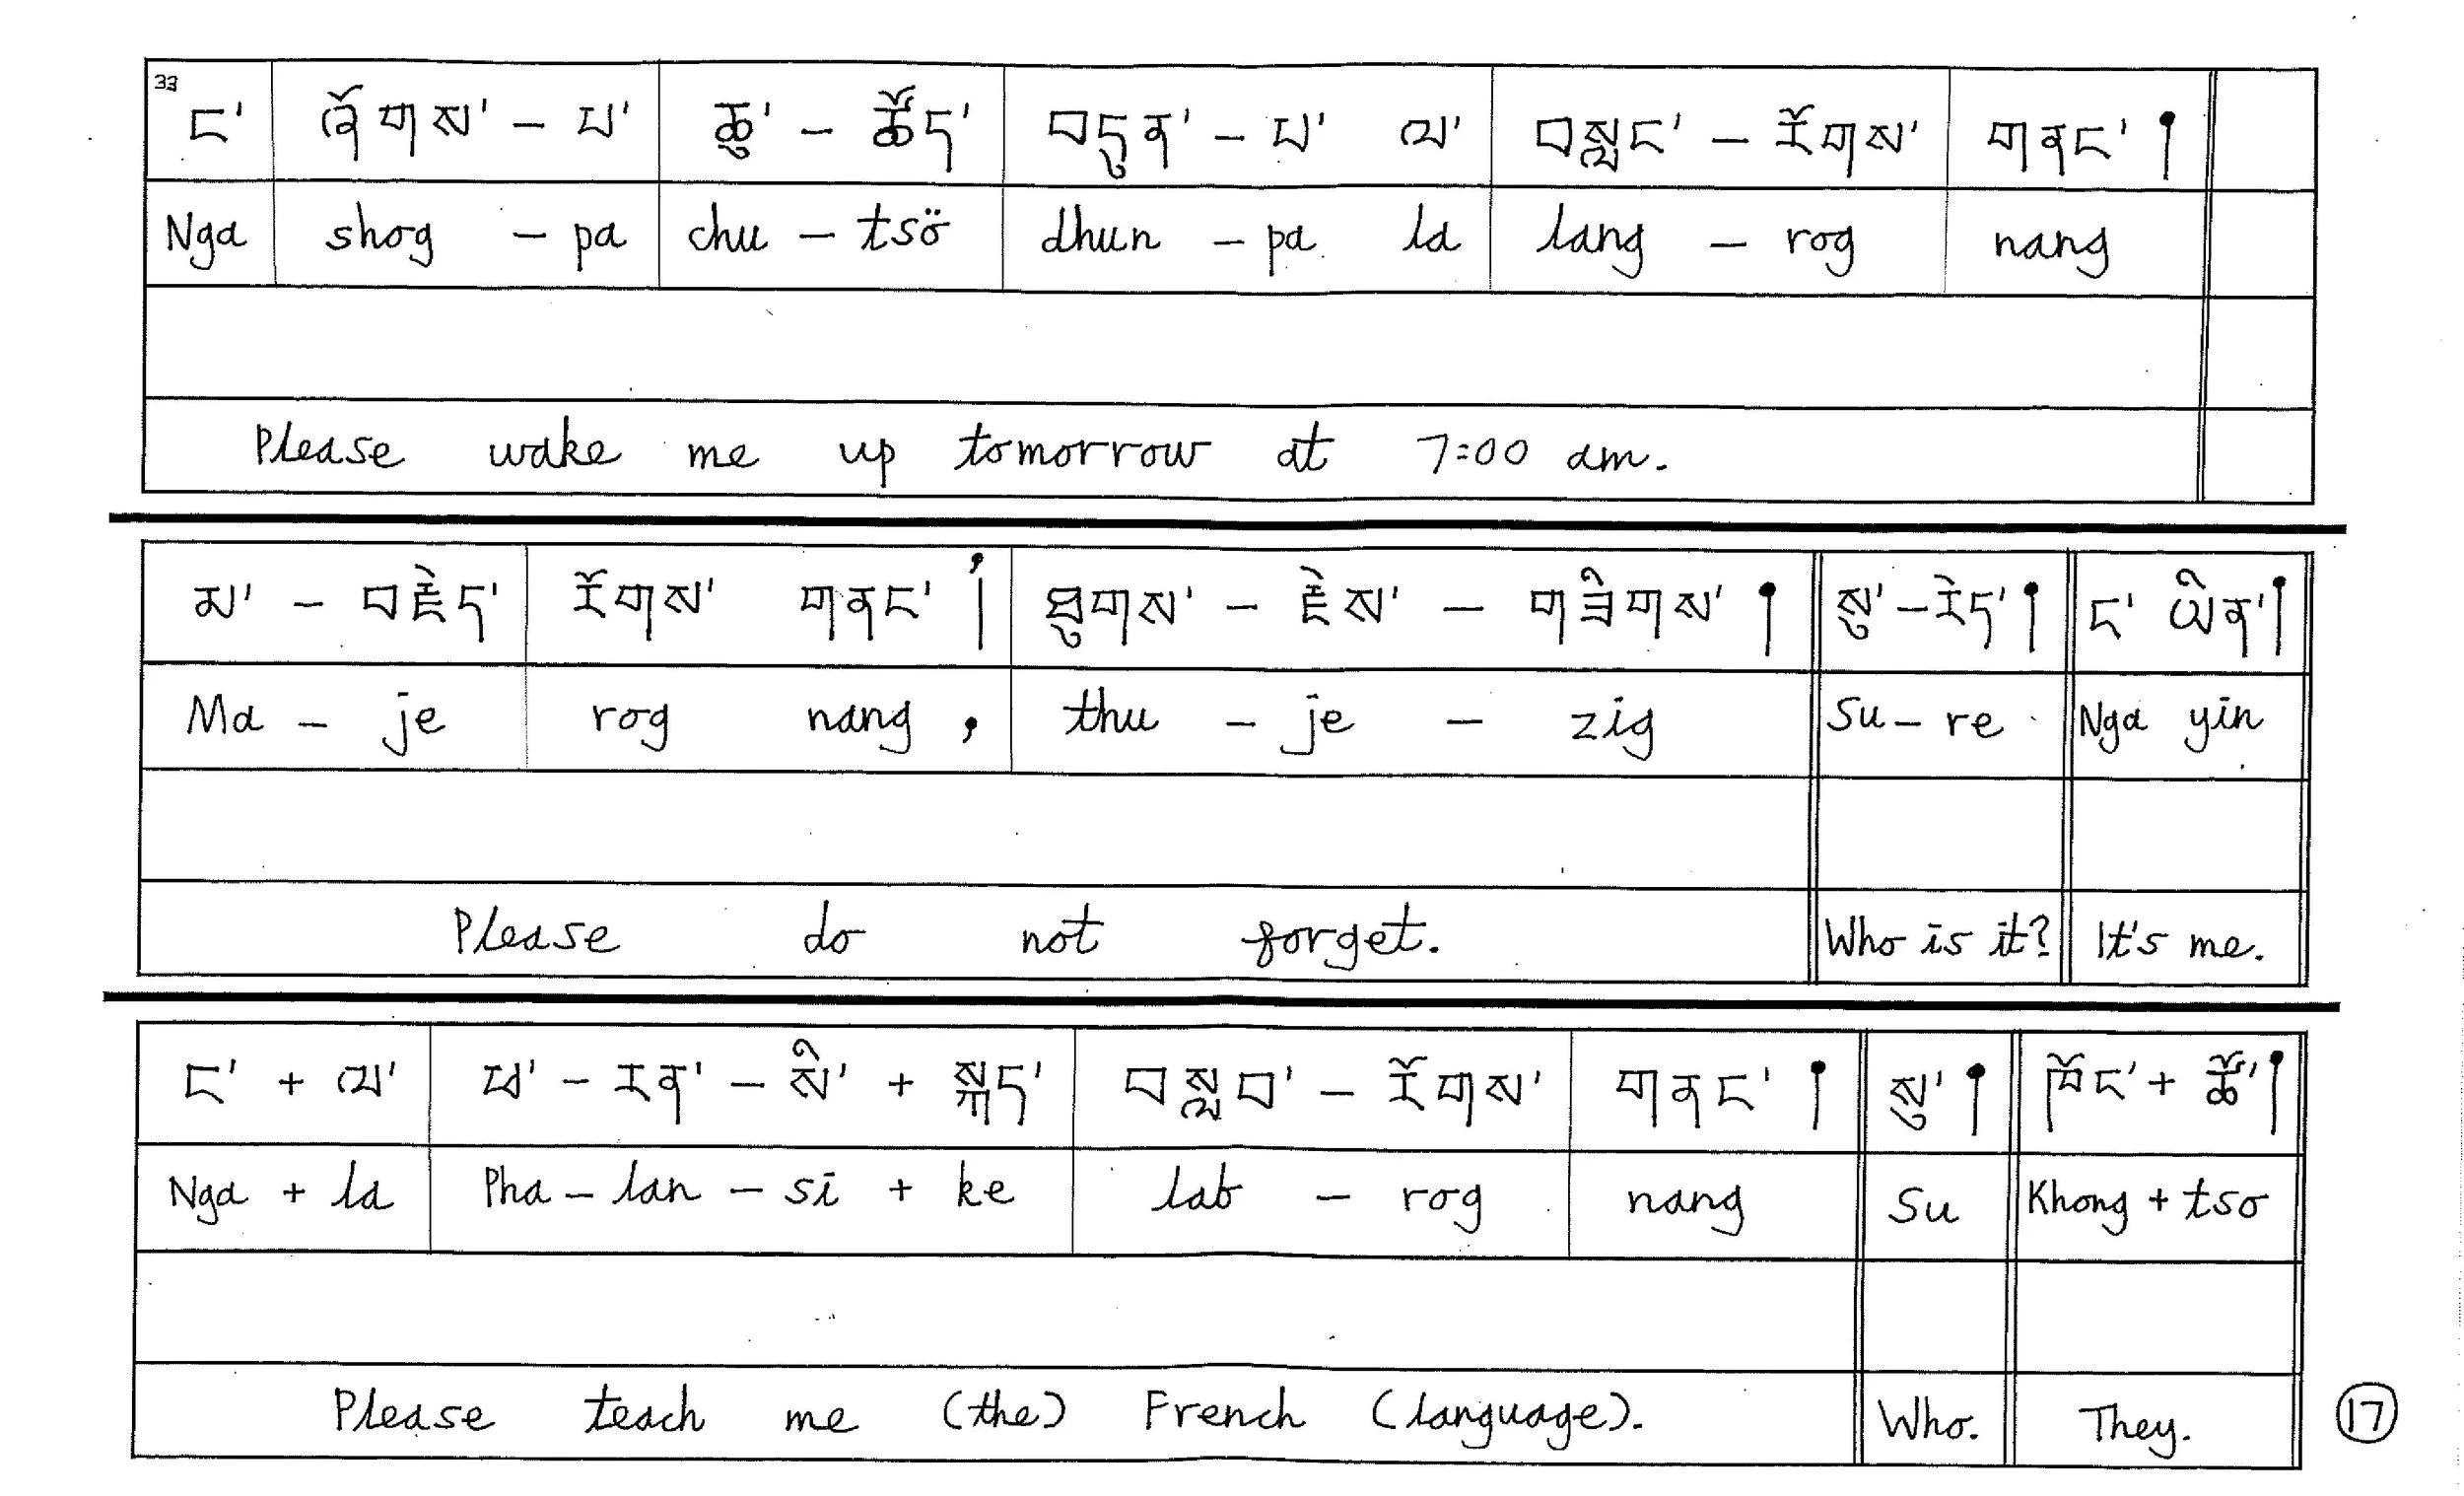 33
ང་ ཞོགས་ - པ་ ཆུ་ - ཚོད་ བདུན་ - པ་ ལ་ བསླང་ - རོགས་ གནང་།
Nga shog - pa chu - tsö dhun - pa la lang - rog nang
Please wake me up tomorrow at 7:00 am.
མ་ - བརྗེད་ རོགས་ གནང་། ཐུགས་ - རྗེས་ - གཟིགས་ ། སུ་ - རེད་། ང་ ཡིན་།
Ma - je rog nang , thu - je - zig Su - re Nga yin
Please do not forget. Who is it? It's me.
ང་ + ལ་ ཕ་ - རན་ - སི་ + སྐད་ བསླབ་ - རོགས་ གནང་ ། སུ་ ། ཁོང་ + ཚོ་།
Nga + la Pha - lan - si + ke lab - rog nang Su Khong + tso
Please teach me (the) French (language). Who. They.
17